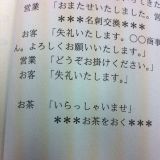 営業　「おまたせいたしました。
＊＊＊名刺交換＊＊＊
お客　「失礼いたします。〇〇商事
ん。よろしくお願いいたします。」
営業　「どうぞお掛けください。」
お客　「失礼いたします。」
お茶　「いらっしゃいませ」
＊＊＊お茶をおく＊＊＊